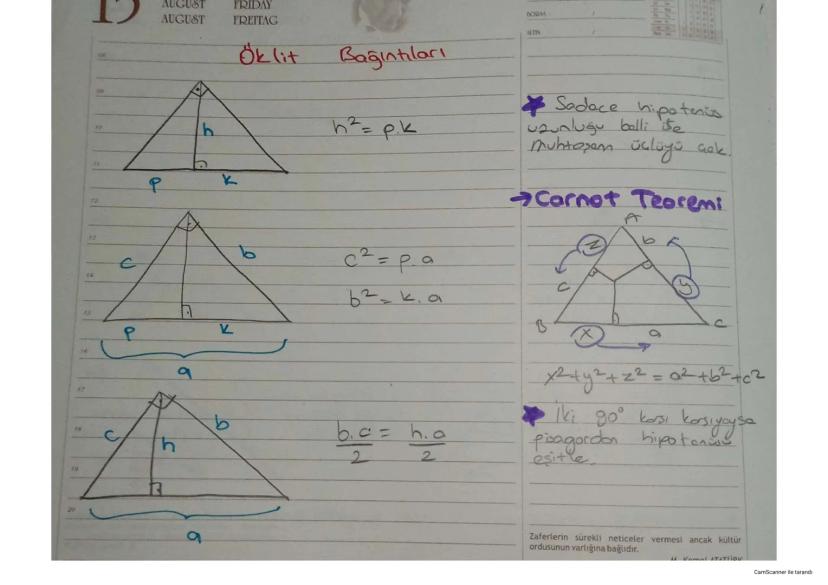 AUGUST FRIDAY
AUGUST FREITAG
Öklit Bağıntıları
h
p k
h² = p.k
c b
p k
a
c² = p.a
b² = k.a
c b
h
a
b.c = h.a
2 2
★ Sadece hipotenüs
uzunluğu belli ise
muhtaşem üçlüyü çak.
→ Carnot Teoremi
A
z b
c y
B x a C
x²+y²+z² = a²+b²+c²
★ İki 90° karsı karsıyaysa
pisagordan hipotenüsü
eşitle.
Zaferlerin sürekli neticeler vermesi ancak kültür
ordusunun varlığına bağlıdır.
CamScanner ile tarandı